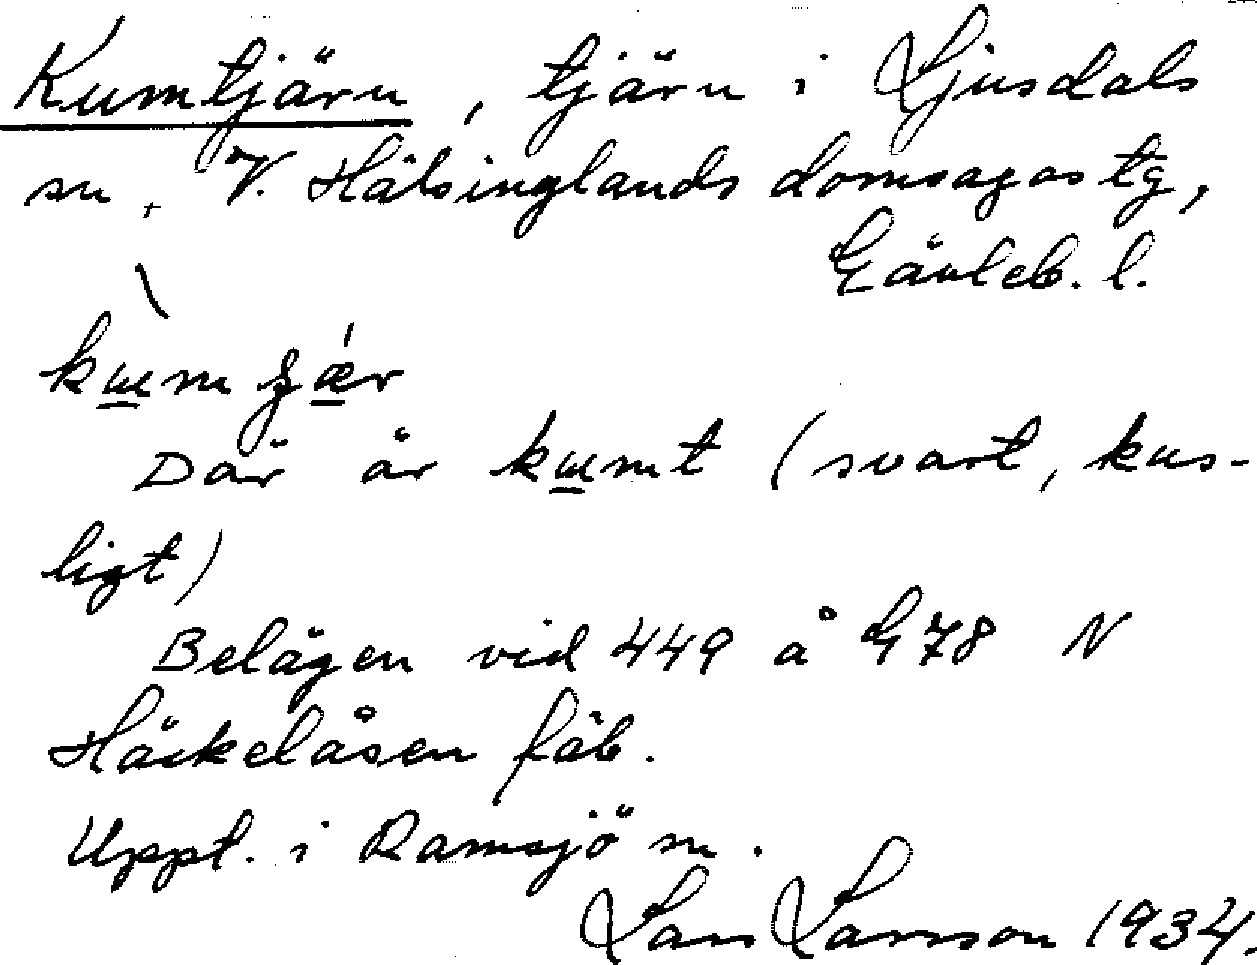 Kumtjärn, tjärn i Ljusdals
sn, V. Hälsinglands domsagas tg,
Gävleb. l.
Där är kumt (svart, kus-
ligt)
Belägen vid 449 å G78 N
Häckelåsen fäb.
Uppt. i Ramsjö sn.
Lars Larsson 1934.